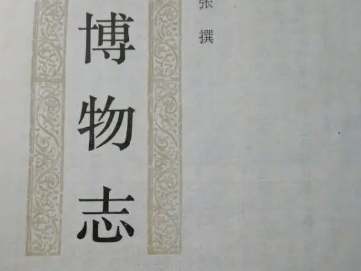 博物志
张 撰